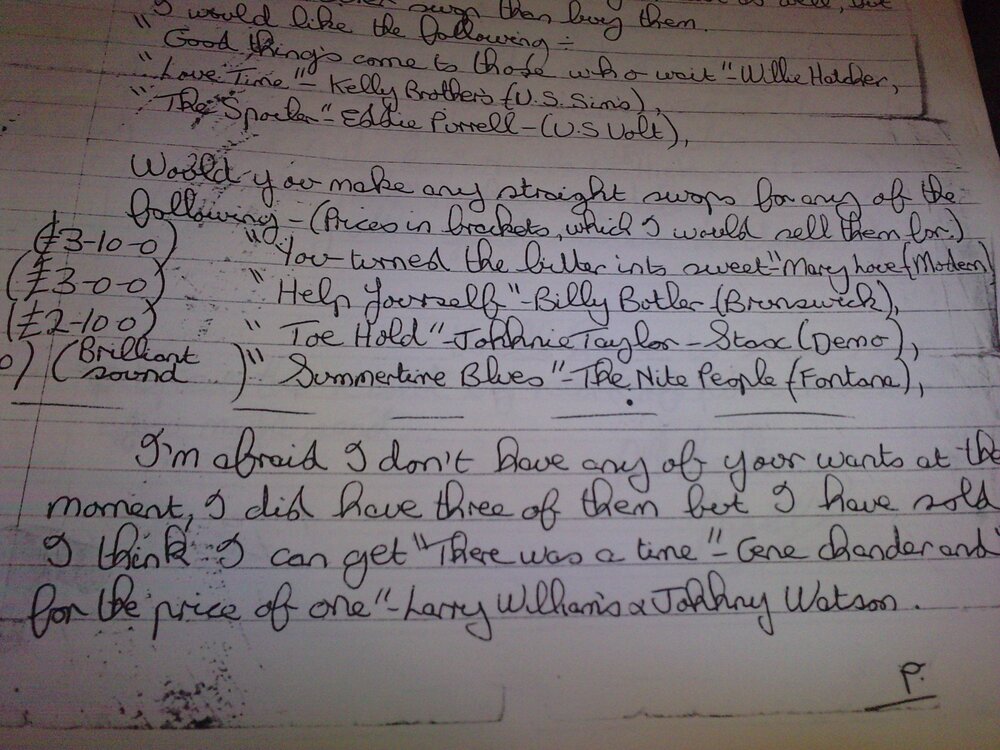 swop then buy them. as well, but
I would like the following :-
"Good things come to those who wait" - Willie Hatcher,
"Love Time" - Kelly Brothers (U.S. Sims),
"The Spoiler" - Eddie Purrell - (U.S Volt),
Would you make any straight swops for any of the
following - (Prices in brackets, which I would sell them for.)
(£3-10-0) "You turned the bitter into sweet" - Mary Love (Modern)
(£3-0-0) "Help Yourself" - Billy Butler (Brunswick),
(£2-10 0) "Toe Hold" - Johhnie Taylor - Stax (Demo),
0) (Brilliant sound) "Summertime Blues" - The Nite People (Fontana),
I'm afraid I don't have any of your wants at the
moment, I did have three of them but I have sold
I think I can get "There was a time" - Gene chander and
for the price of one" - Larry Williams & Johhny Watson.
P.